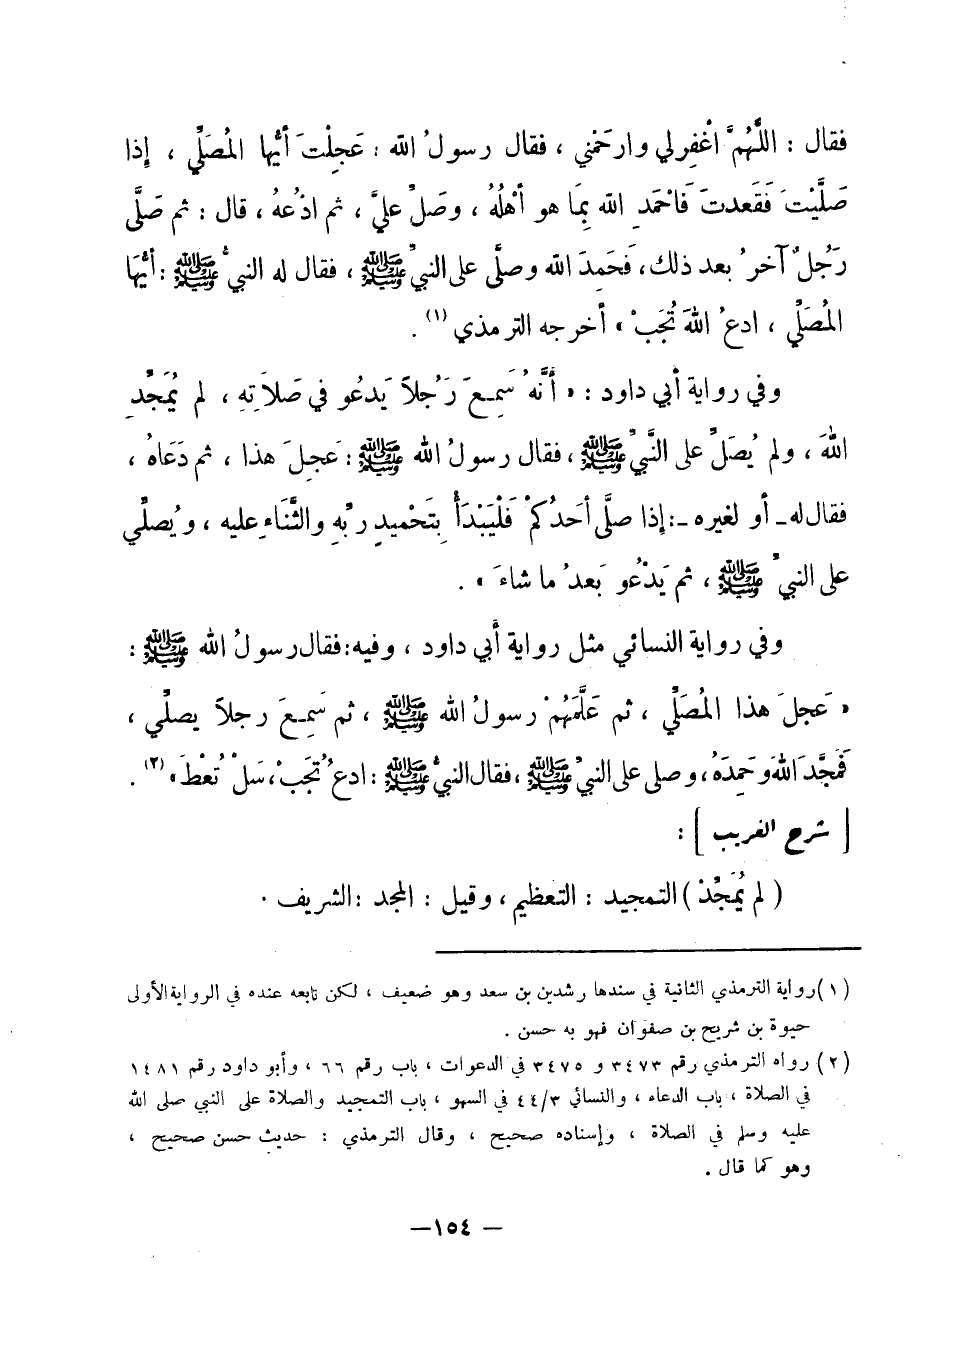 فقال : اللَّهُمَّ اغْفِرلي وارحَمْني ، فقال رسولُ الله : عَجِلْتَ أيُّها المُصَلِّي ، إذا
صَلَّيْتَ فَقَعدتَ فَاحْمَدِ الله بِمَا هو أهْلُهُ ، وَصَلِّ عليَّ ، ثم ادْعُهُ ، قال : ثم صَلَّى
رَجُلٌ آخرُ بعد ذلك ، فَحَمِدَ الله وصلَّى على النبيِّ ﷺ ، فقال له النبيُّ ﷺ : أيُّهَا
المُصَلِّي ، ادعُ اللهَ تُجَبْ » أخرجه الترمذي (١) .
وفي رواية أبي داود : « أَنَّهُ سَمِعَ رَجُلاً يَدعُو في صَلاَتِهِ ، لم يُمَجِّدِ
اللهَ ، ولم يُصَلِّ على النَّبيِّ ﷺ ، فقال رسولُ الله ﷺ : عَجِلَ هذا ، ثم دَعَاهُ ،
فقال له ـ أو لغيره ـ : إذا صلَّى أحَدُكُمْ فَلْيَبْدَأْ بِتَحْميدِ ربِّهِ والثَّنَاءِ عليه ، ويُصلِّي
على النبيِّ ﷺ ، ثم يَدْعُو بَعدُ ما شاءَ » .
وفي رواية النسائي مثل رواية أبي داود ، وفيه : فقال رسولُ الله ﷺ :
« عَجِلَ هذا المُصَلِّي ، ثم عَلَّمَهُمْ رسولُ الله ﷺ ، ثم سَمِعَ رجلاً يصلِّي ،
فَمَجَّدَ اللهَ وَحَمِدَهُ ، وصلى على النبيِّ ﷺ ، فقال النبيُّ ﷺ : ادعُ تُجَبْ ، سَلْ تُعْطَ » (٢) .
[ شرح الغريب ] :
( لم يُمَجِّدْ ) التمجيد : التعظيم ، وقيل : المجد : الشريف .
(١) رواية الترمذي الثانية في سندها رشدين بن سعد وهو ضعيف ، لكن تابعه عنده في الرواية الأولى
حيوة بن شريح بن صفوان فهو به حسن .
(٢) رواه الترمذي رقم ٣٤٧٣ و ٣٤٧٥ في الدعوات ، باب رقم ٦٦ ، وأبو داود رقم ١٤٨١
في الصلاة ، باب الدعاء ، والنسائي ٤٤/٣ في السهو ، باب التمجيد والصلاة على النبي صلى الله
عليه وسلم في الصلاة ، وإسناده صحيح ، وقال الترمذي : حديث حسن صحيح ،
وهو كما قال .
— ١٥٤ —